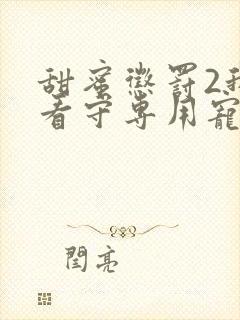 甜蜜懲罰2我
看守專用寵
閆亮